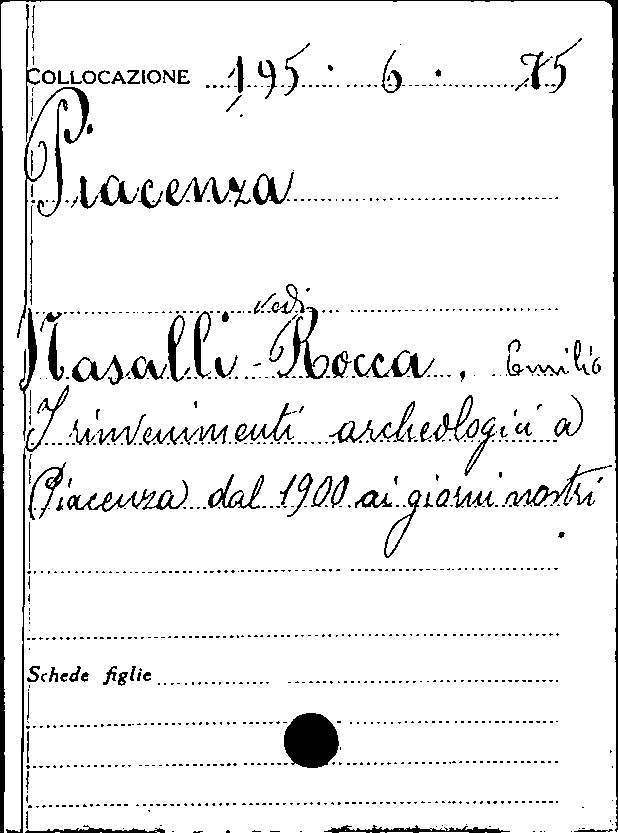 COLLOCAZIONE 195. 6. 75
Piacenza
vedi
Nasalli-Rocca, Emilio
I rinvenimenti archeologici a
Piacenza dal 1900 ai giorni nostri.
Schede figlie